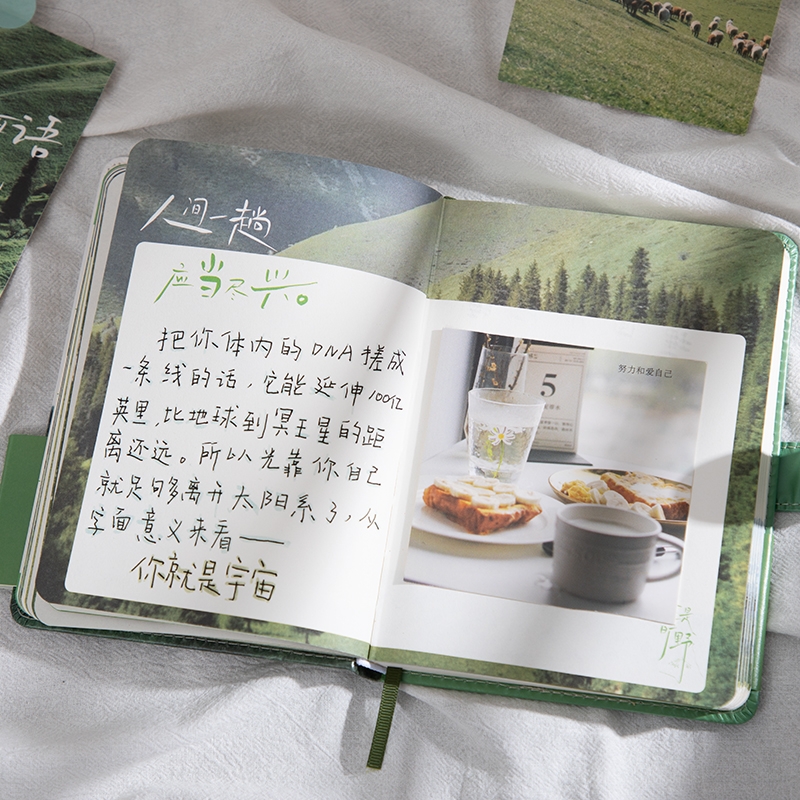 语
人间一趟
应当尽兴。
把你体内的DNA搓成
一条线的话,它能延伸100亿
英里,比地球到冥王星的距
离还远。所以光靠你自己
就足够离开太阳系了,从
字面意义来看——
你就是宇宙
5
努力和爱自己
旷野